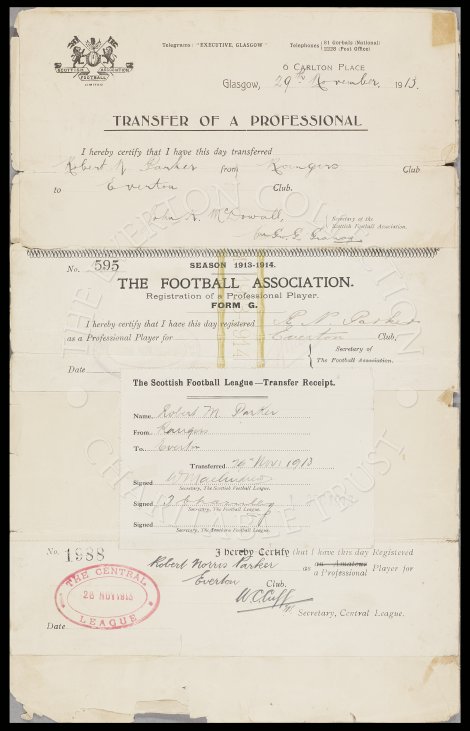 SCOTTISH FOOTBALL ASSOCIATION LIMITED
Telegrams: "EXECUTIVE, GLASGOW"
Telephones 31 Gorbals (National) 2228 (Post Office)
6 CARLTON PLACE
Glasgow, 29th November 1913.
TRANSFER OF A PROFESSIONAL
I hereby certify that I have this day transferred
Robert N. Parker from Rangers Club
to Everton Club.
John K. McDowall,
Secretary of the
Scottish Football Association.
No. 595
SEASON 1913-1914.
THE FOOTBALL ASSOCIATION.
Registration of a Professional Player.
FORM G.
I hereby certify that I have this day registered R. N. Parker
as a Professional Player for Everton Club,
Secretary of
The Football Association.
Date
The Scottish Football League—Transfer Receipt.
Name, Robert N. Parker
From, Rangers
To, Everton
Transferred Nov. 1913
Signed
Secretary, The Scottish Football League.
Signed
Secretary, The Football League.
Signed
Secretary, The Southern Football League.
No. 1988
I hereby Certify that I have this day Registered
Robert Norris Parker as an Amateur
a Professional Player for
Everton Club.
W.C. Cuff
Secretary, Central League.
THE CENTRAL
28 NOV 1913
LEAGUE
Date
THE EVERTON COLLECTION
CHARITABLE TRUST